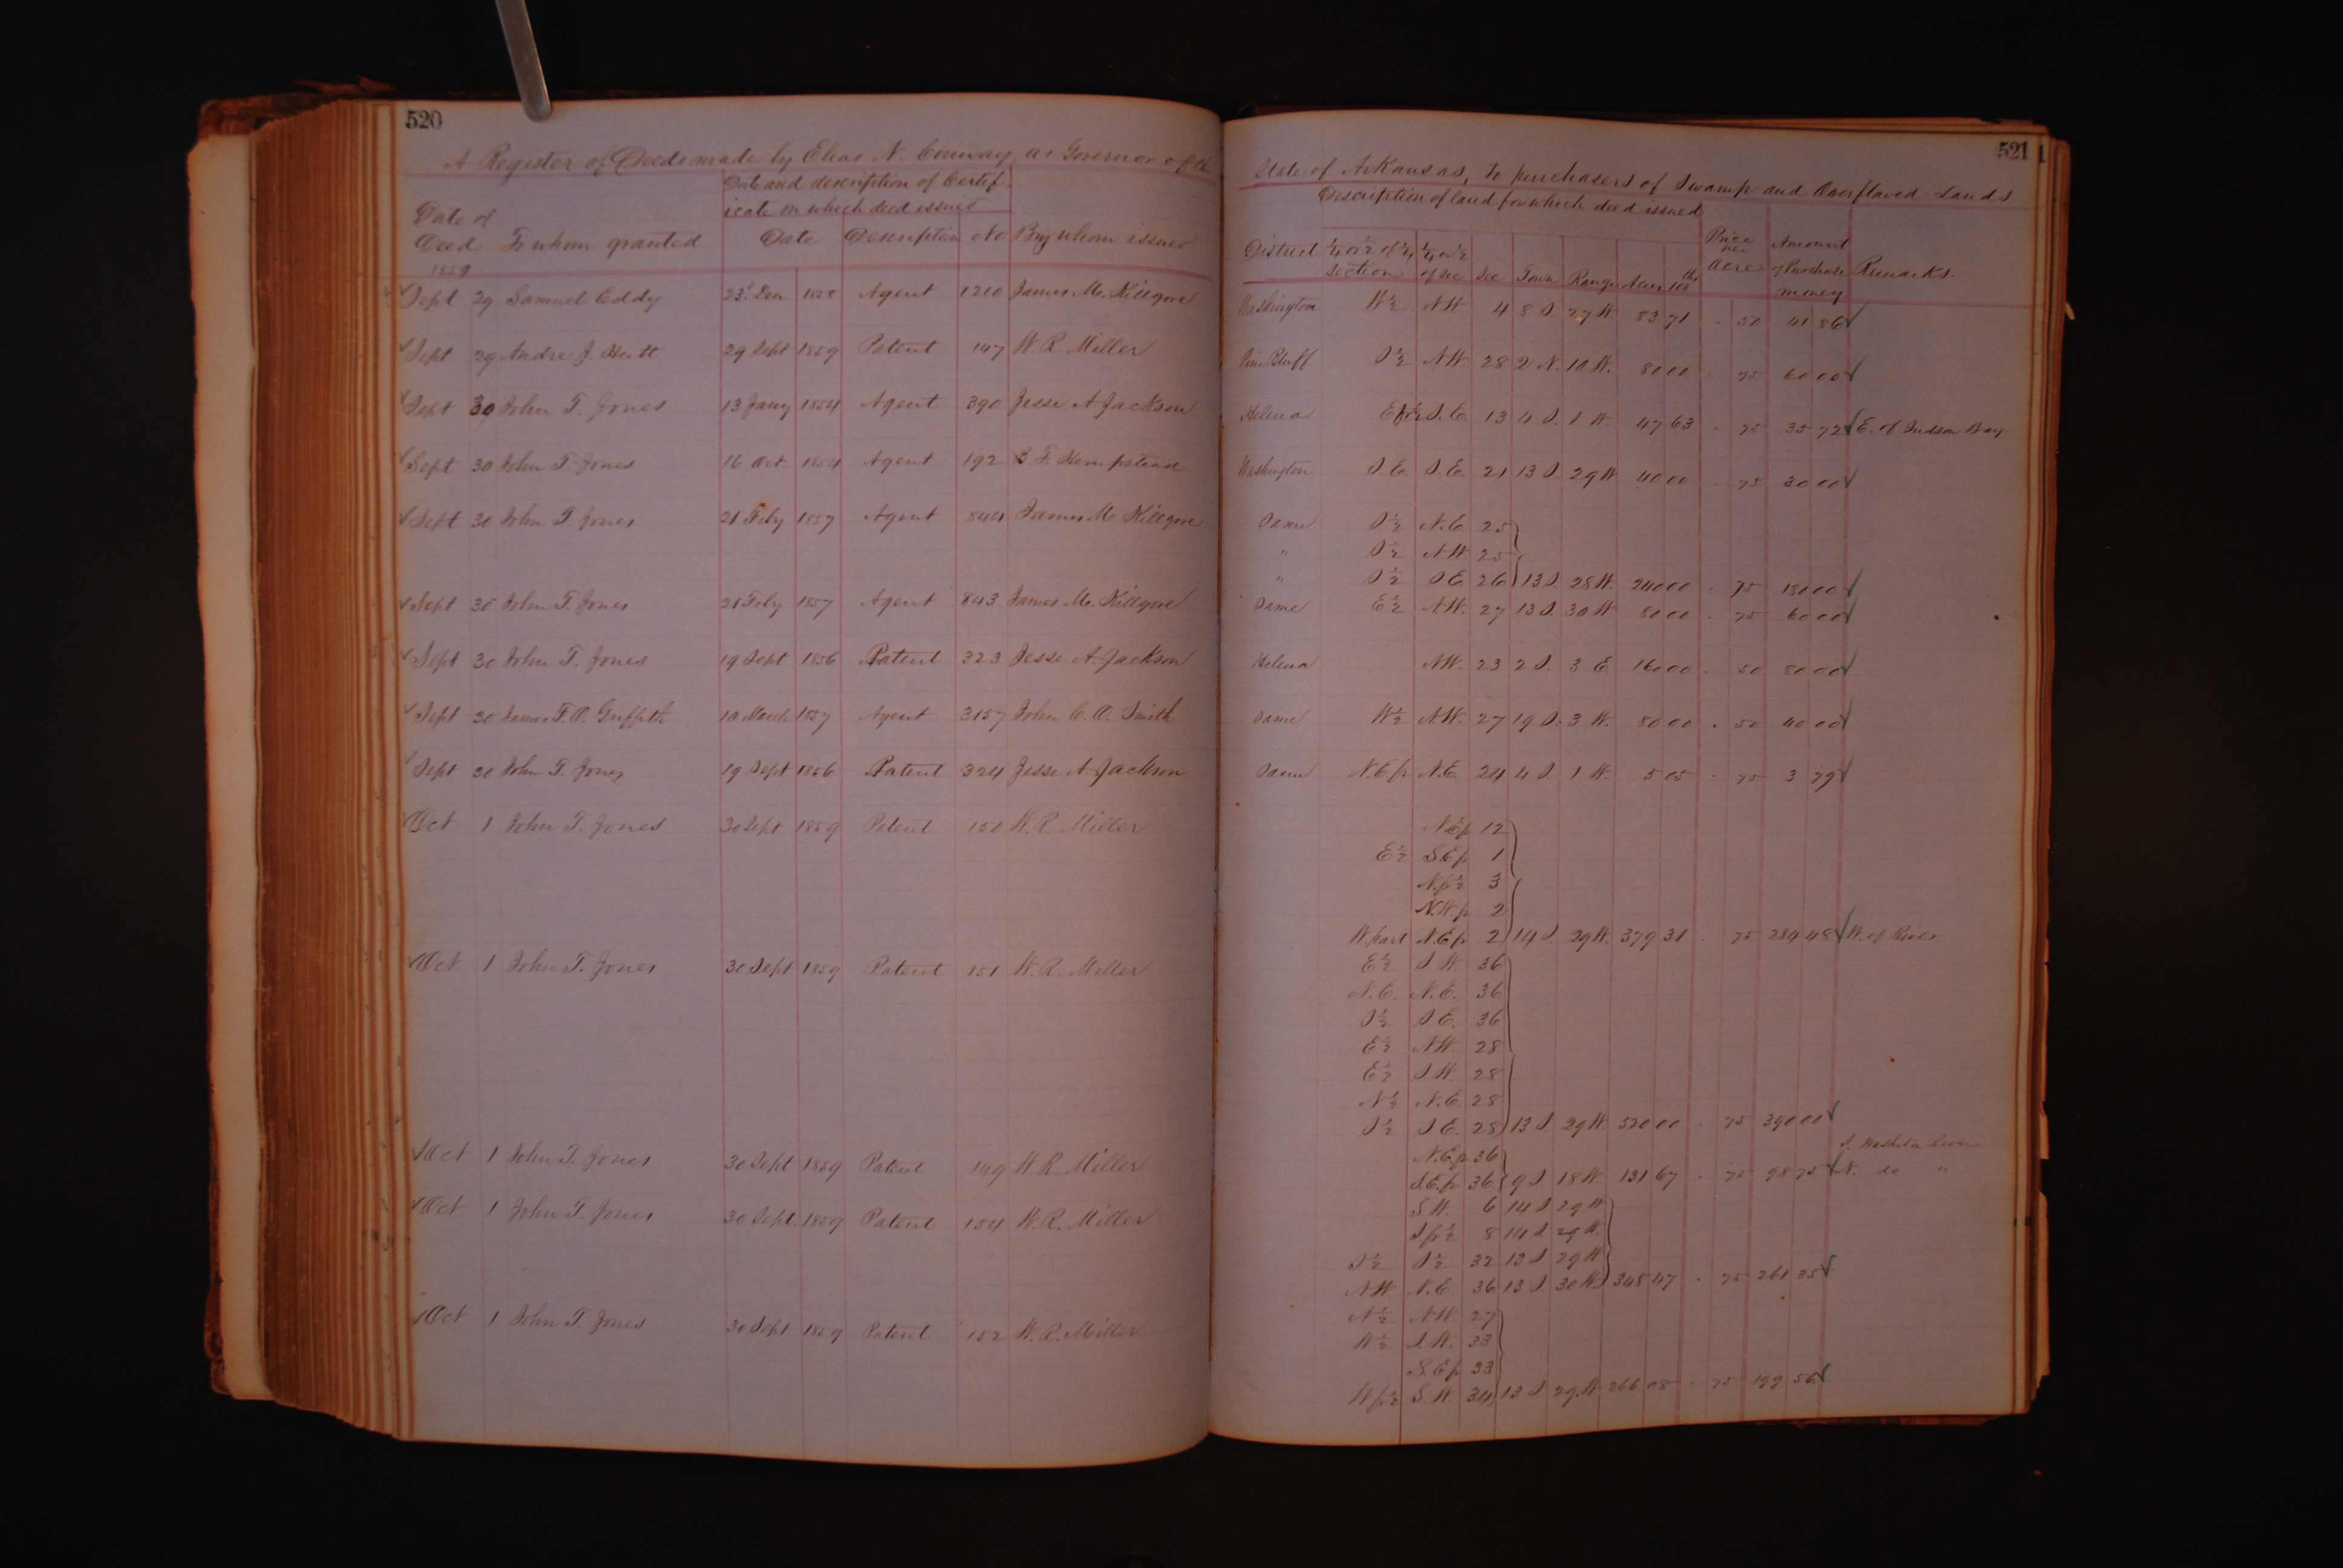 520
A Register of Deeds made by Elias N. Conway, as Governor of the
Date and description of Certif-
icate on which deed issued
Date of
Deed To whom granted Date Description No By whom issued
1859
Sept 29 Samuel Eddy 23d Dec 1858 Agent 1210 James M. Killgore
Sept 29 Andre J. Hutt 29 Sept 1859 Patent 147 W. R. Miller
Sept 30 John T. Jones 13 Jany 1854 Agent 390 Jesse A Jackson
Sept 30 John T. Jones 16 Oct. 1854 Agent 192 B. F. Hempstead
Sept 30 John T. Jones 21 Feby 1857 Agent 844 James M. Killgore
Sept 30 John T. Jones 21 Feby 1857 Agent 843 James M. Killgore
Sept 30 John T. Jones 19 Sept 1856 Patent 323 Jesse A. Jackson
Sept 30 James F. O. Griffith 10 March 1857 Agent 3157 John C. O. Smith
Sept 30 John T. Jones 19 Sept 1856 Patent 324 Jesse A. Jackson
Oct 1 John T. Jones 30 Sept 1859 Patent 150 W. R. Miller
Oct 1 John T. Jones 30 Sept 1859 Patent 151 W. R. Miller
Oct 1 John T. Jones 30 Sept 1859 Patent 149 W. R. Miller
Oct 1 John T. Jones 30 Sept 1859 Patent 154 W. R. Miller
Oct 1 John T. Jones 30 Sept 1859 Patent 152 W. R. Miller
521
State of Arkansas, to purchasers of Swamp and Overflowed Lands
Description of land for which deed issued
District ¼ or ½ of ¼ section ¼ or ½ of Sec Sec Town Range Acres 100ths Price per Acre Amount of Purchase money Remarks.
Washington W ½ N W. 4 8 S. 27 W. 83 71 . 50 41 86
Pine Bluff S ½ N W. 28 2 N. 10 W. 80 00 . 75 60 00
Helena E fr ½ S. E. 13 4 S. 1 W. 47 63 . 75 35 72 E. of Judson Bay
Washington S. E. S. E. 21 13 S. 29 W 40 00 . 75 30 00
Same S ½ N. E. 25
" S ½ N W. 25
" S ½ S E. 26 13 S. 28 W. 240 00 . 75 180 00
Same E ½ N W. 27 13 S. 30 W 80 00 . 75 60 00
Helena N W. 23 2 S. 3 E. 160 00 . 50 80 00
Same W ½ N W. 27 19 S. 3 W. 80 00 . 50 40 00
Same N. E fr N. E. 24 4 S. 1 W. 5 05 . 75 3 79
N. E fr 12
E ½ S. E fr 1
N. fr ½ 3
N. W. fr 2
W. part N. E fr 2 14 S. 29 W. 379 31 . 75 284 48 W. of River.
E ½ S. W. 36
N. E. N. E. 36
S ½ S. E. 36
E ½ N W. 28
E ½ S. W. 28
N ½ N. E. 28
S ½ S E. 28 13 S. 29 W. 520 00 . 75 390 00
N. E fr 36 S. Washita River
S. E. fr 36 9 S 18 W. 131 67 . 75 98 75 N. do "
S W. 6 14 S 29 W
S fr ½ 8 14 S 29 W.
S ½ S ½ 32 13 S 29 W
N W N. E. 36 13 S 30 W. 348 47 . 75 261 35
N ½ N. W. 27
W ½ S. W. 33
S. E fr 33
W fr ½ S. W. 34 13 S 29 W 266 08 . 75 199 56